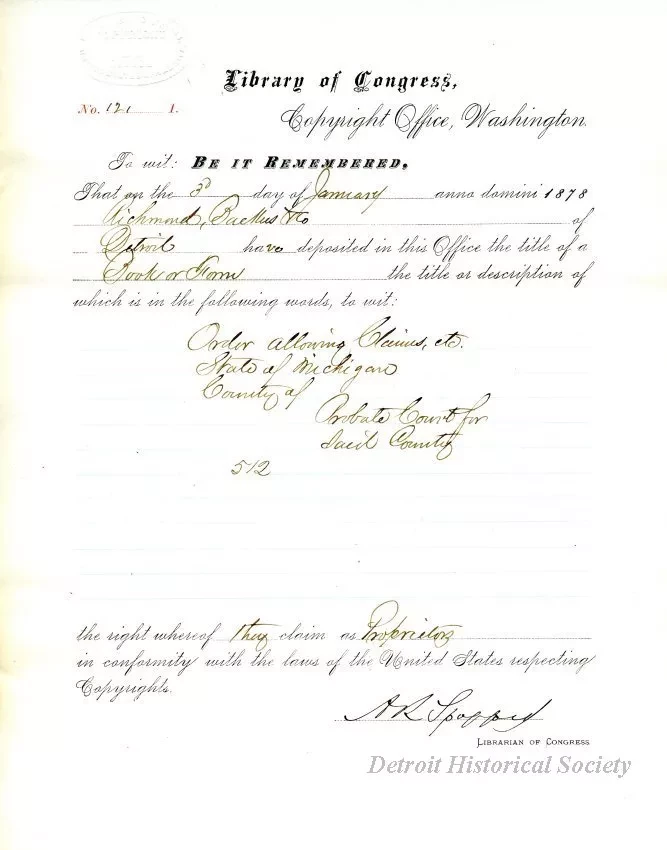 Library of Congress,
No. 121 I.
Copyright Office, Washington.
To wit: BE IT REMEMBERED.
That on the 3d day of January anno domini 1878
Richmond, Backus & Co of
Detroit have deposited in this Office the title of a
Book or Form the title or description of
which is in the following words, to wit:
Order allowing Claims, etc.
State of Michigan
County of
Probate Court for
Said County
512
the right whereof they claim as Proprietors
in conformity with the laws of the United States respecting
Copyrights.
A R Spofford
LIBRARIAN OF CONGRESS
Detroit Historical Society